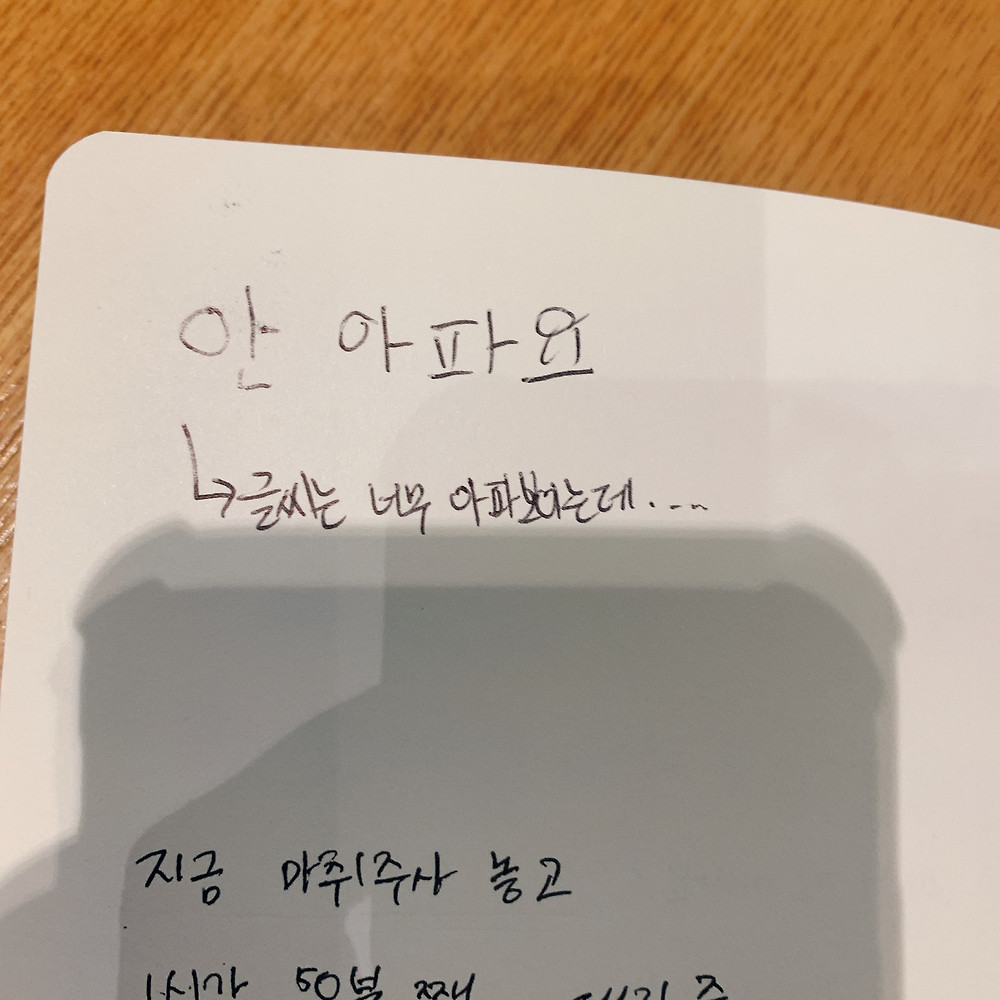 안 아파요
↳글씨는 너무 아파보이는데....
지금 마취주사 놓고
1시간 50분 째 대기 중